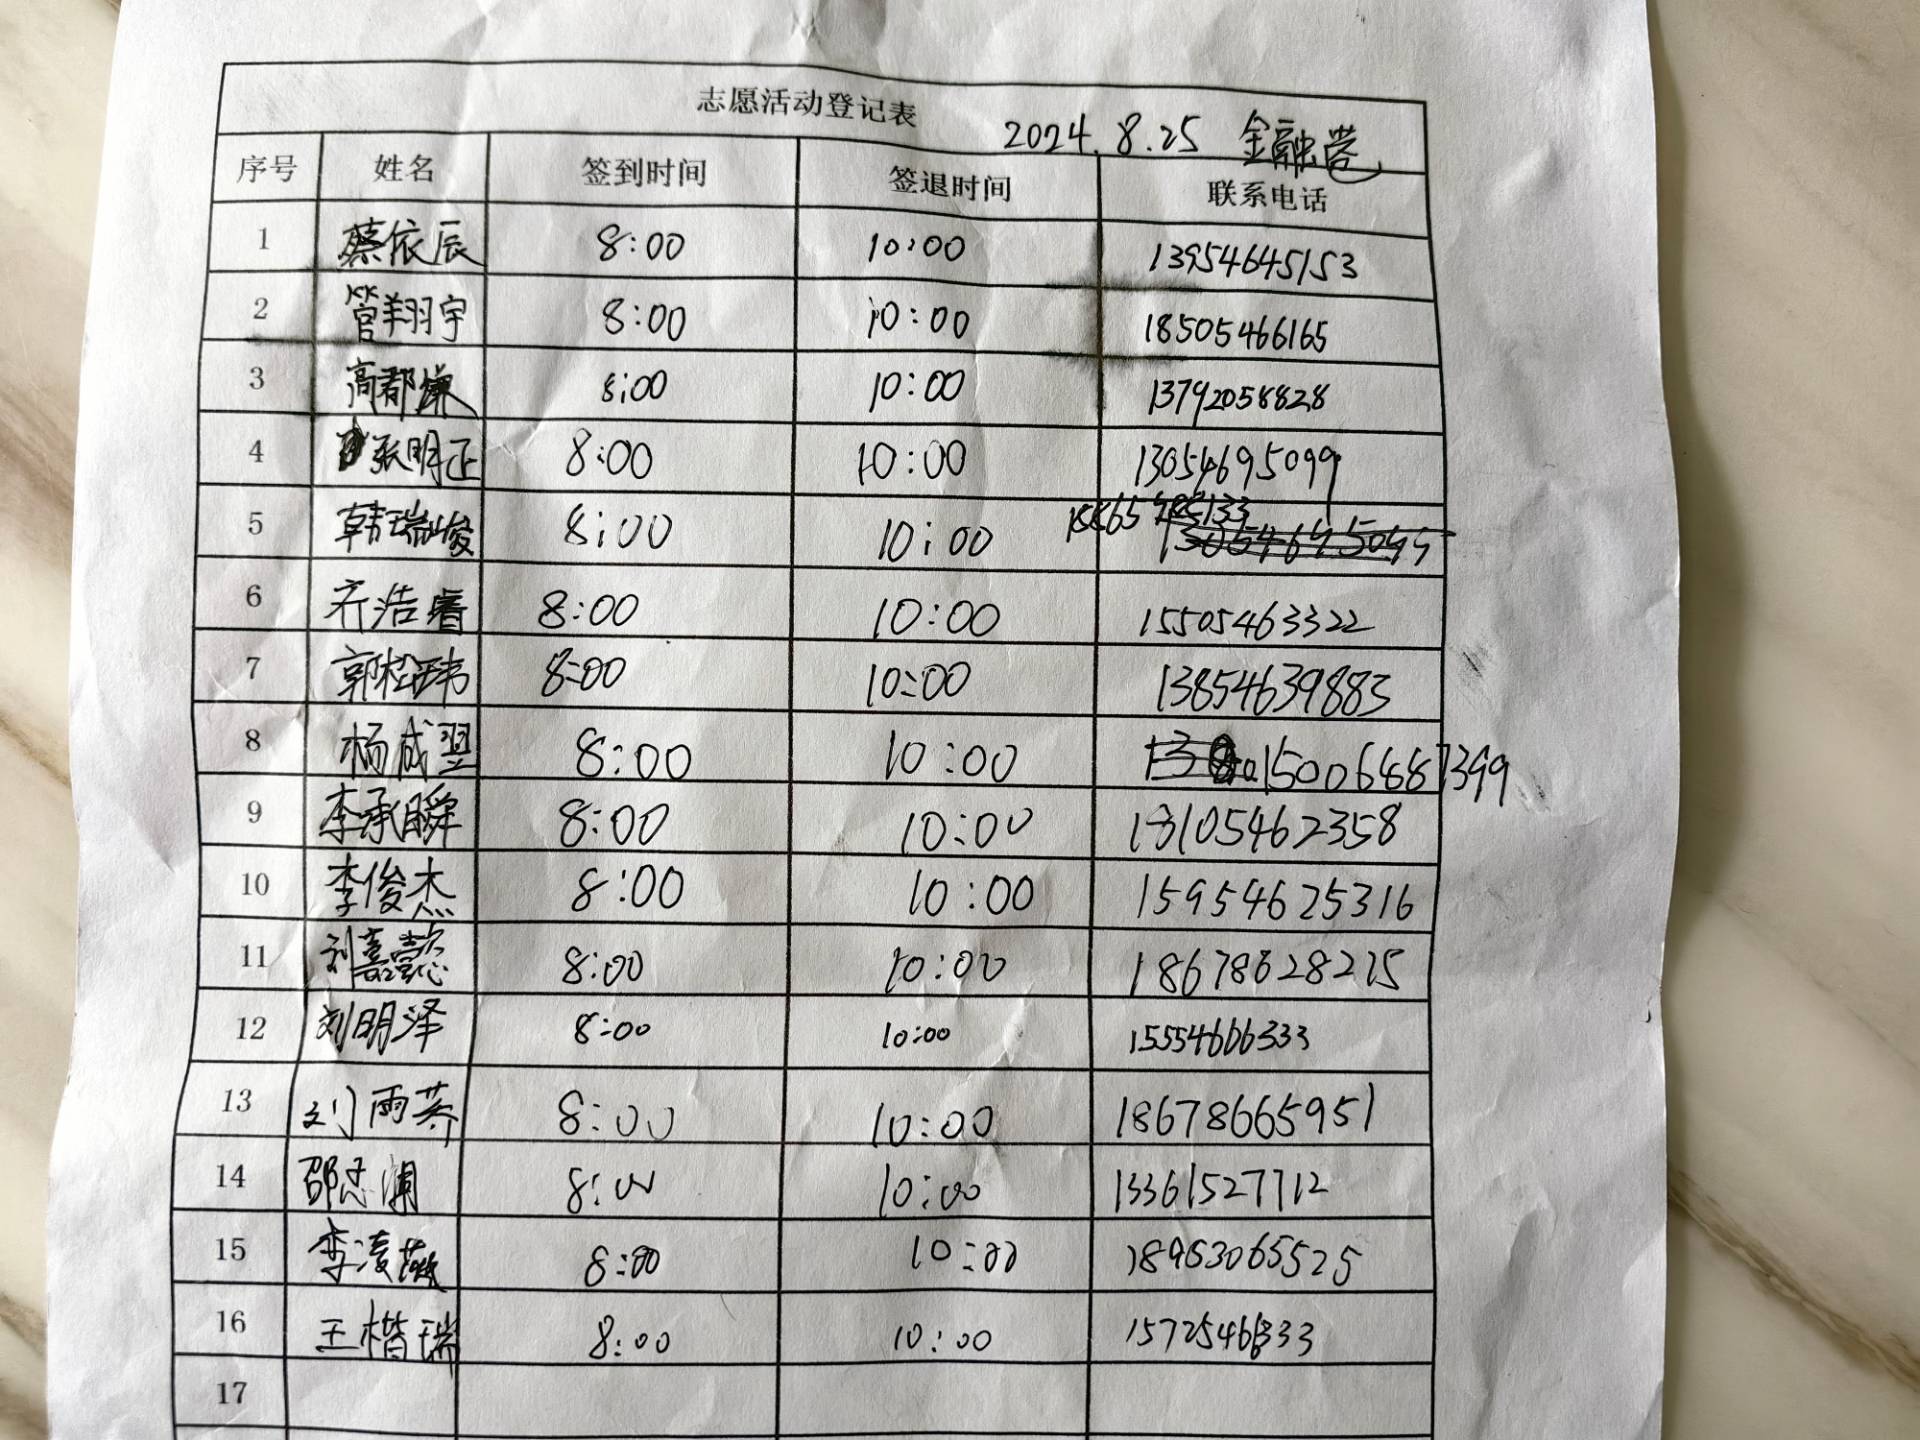 志愿活动登记表
2024.8.25 金融港
序号 姓名 签到时间 签退时间 联系电话
1 蔡依辰 8:00 10:00 13954645153
2 管翔宇 8:00 10:00 18505466165
3 高郡谦 8:00 10:00 13792058828
4 张明正 8:00 10:00 13054695099
5 韩瑞峻 8:00 10:00 18865485133
6 齐浩睿 8:00 10:00 15505463322
7 郭松玮 8:00 10:00 13854639883
8 杨咸翌 8:00 10:00 15006887399
9 李承瞬 8:00 10:00 13105462358
10 李俊杰 8:00 10:00 15954625316
11 刘嘉懿 8:00 10:00 18678628225
12 刘明泽 8:00 10:00 15554606333
13 刘雨荞 8:00 10:00 18678665951
14 邵思澜 8:00 10:00 13361527712
15 李凌薇 8:00 10:00 18963065525
16 王楷瑞 8:00 10:00
17